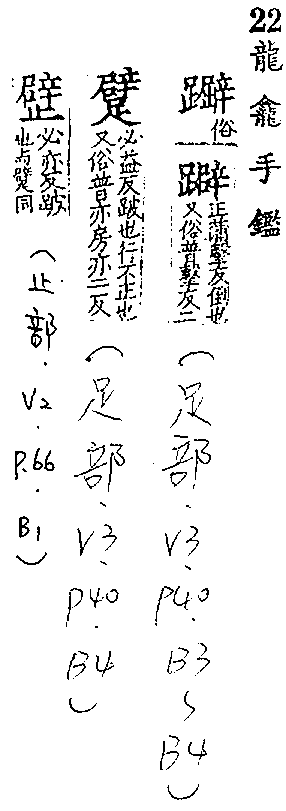 22 龍龕手鑑
俗 躃 正蒲擊反倒也又俗普擊反二（足部.V3、P40.B3~B4）
躄 必益反跛也行不正也又俗普亦房亦二反（足部.V3、P40.B4）
必亦反跛也与躄同（止部.V2.P.66.B1）